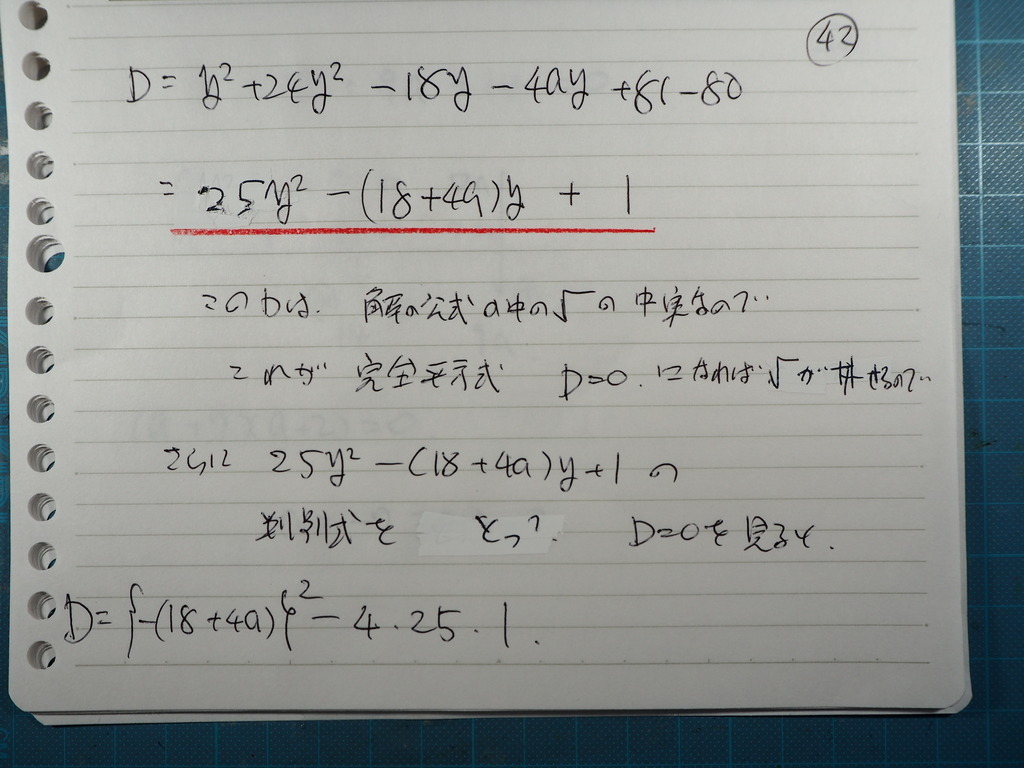 42
D = y² + 24y² - 18y - 4ay + 81 - 80
= 25y² - (18 + 4a)y + 1
このDは、解の公式の中の√の中実なので
これが 完全平方式 D=0.になれば√が外せるので
さらに 25y² - (18 + 4a)y + 1 の
判別式を とって D=0を見ると.
D = {-(18 + 4a)}² - 4・25・1.